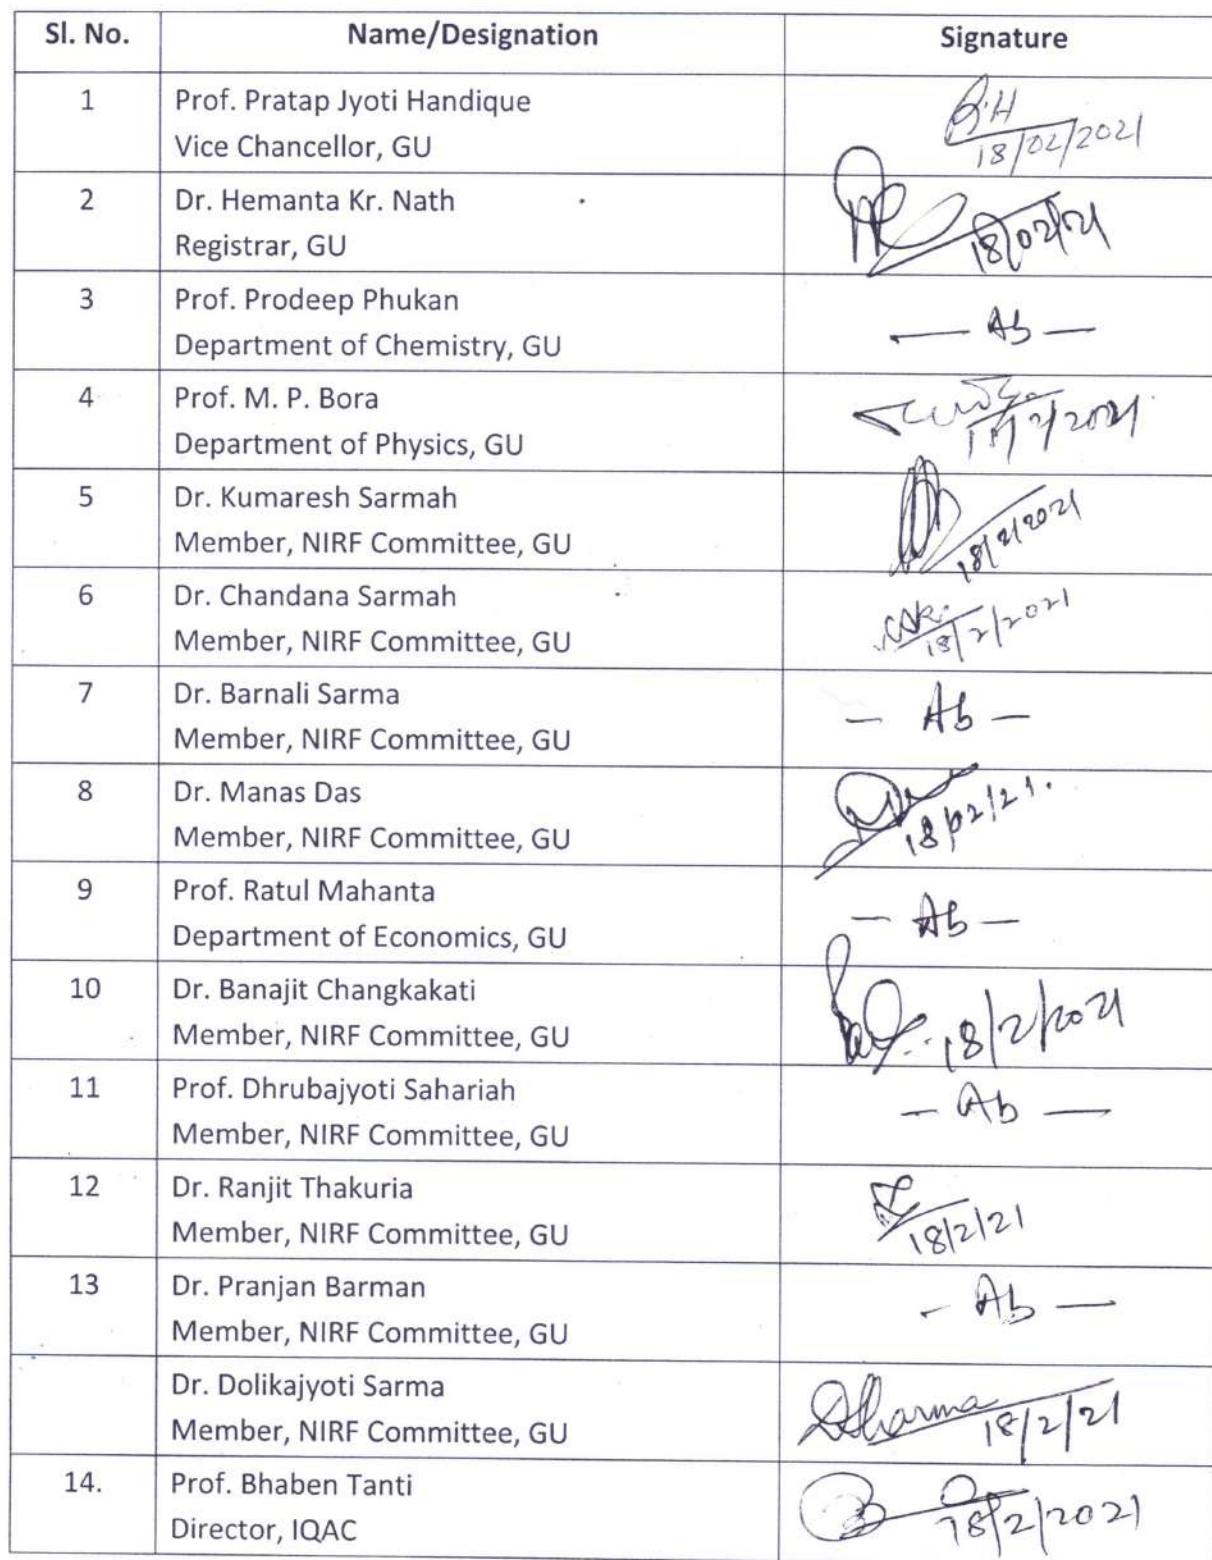 Sl. No. Name/Designation Signature
1 Prof. Pratap Jyoti Handique
Vice Chancellor, GU
18/02/2021
2 Dr. Hemanta Kr. Nath
Registrar, GU
18/02/21
3 Prof. Prodeep Phukan
Department of Chemistry, GU
— Ab —
4 Prof. M. P. Bora
Department of Physics, GU
18/2/2021
5 Dr. Kumaresh Sarmah
Member, NIRF Committee, GU
18/2/2021
6 Dr. Chandana Sarmah
Member, NIRF Committee, GU
18/2/2021
7 Dr. Barnali Sarma
Member, NIRF Committee, GU
— Ab —
8 Dr. Manas Das
Member, NIRF Committee, GU
18/02/21.
9 Prof. Ratul Mahanta
Department of Economics, GU
— Ab —
10 Dr. Banajit Changkakati
Member, NIRF Committee, GU
18/2/2021
11 Prof. Dhrubajyoti Sahariah
Member, NIRF Committee, GU
— Ab —
12 Dr. Ranjit Thakuria
Member, NIRF Committee, GU
18/2/21
13 Dr. Pranjan Barman
Member, NIRF Committee, GU
— Ab —
Dr. Dolikajyoti Sarma
Member, NIRF Committee, GU
DSharma 18/2/21
14. Prof. Bhaben Tanti
Director, IQAC
18/2/2021